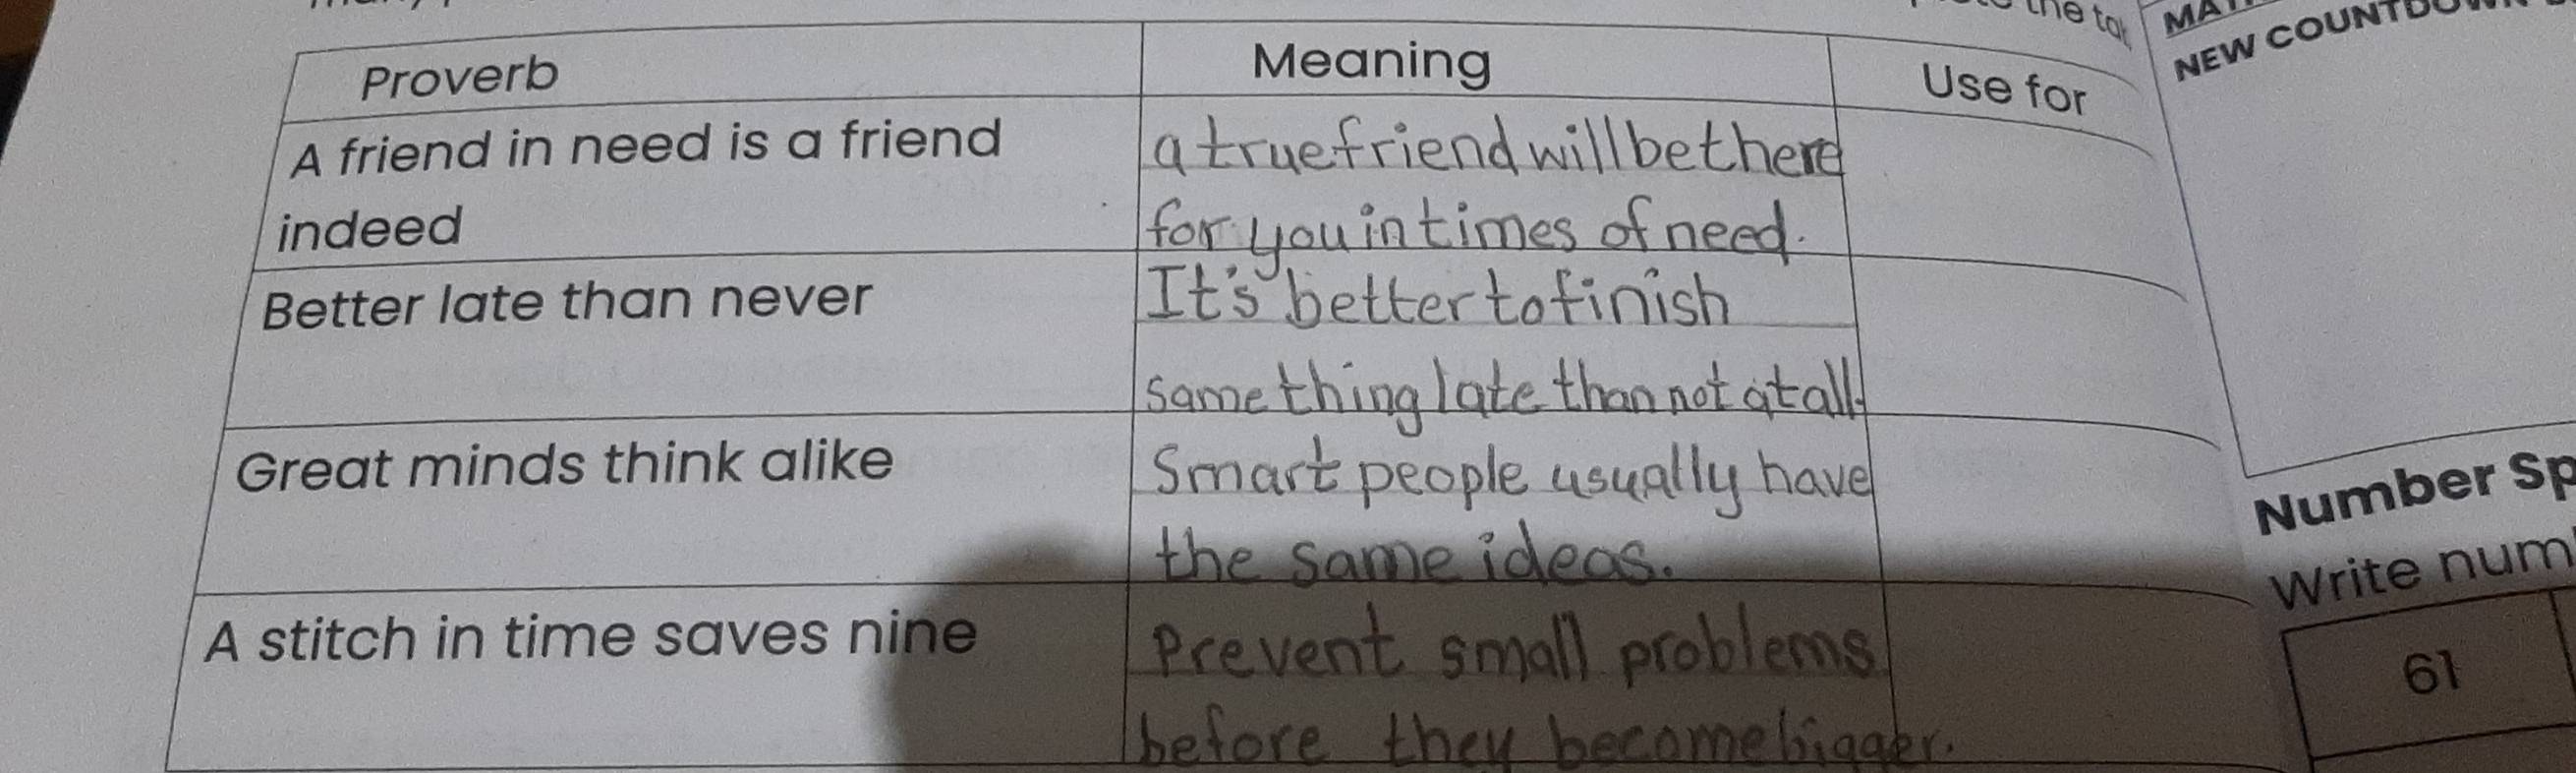 the
MA
NEW COUNTDOWN
Proverb
Meaning
Use for
A friend in need is a friend
indeed
a true friend will be there
for you in times of need.
Better late than never
It's better to finish
same thing late than not at all.
Great minds think alike
Smart people usually have
the same ideas.
A stitch in time saves nine
Prevent small problems
before they become bigger.
Number Sp
Write num
61